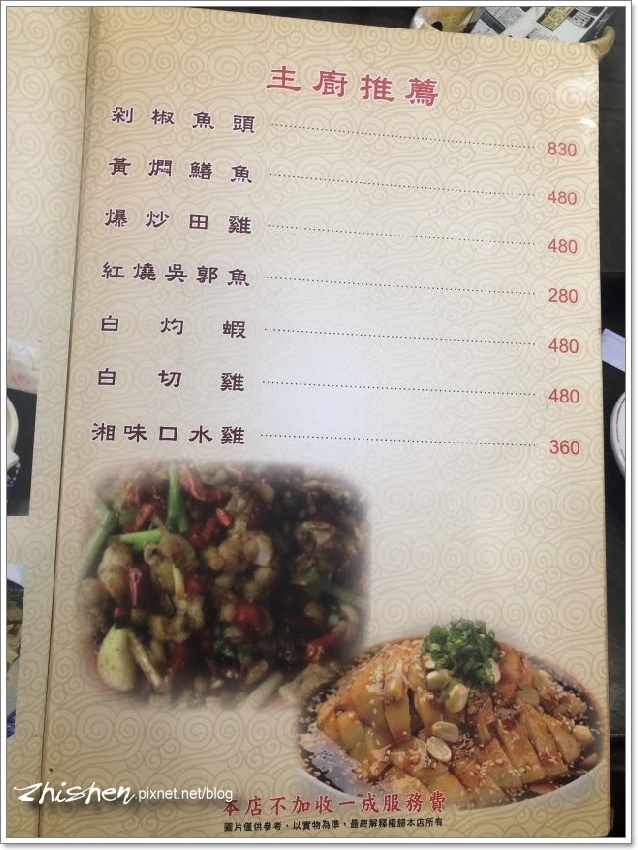 主廚推薦
剁椒魚頭 830
黃燜鱔魚 480
爆炒田雞 480
紅燒吳郭魚 280
白灼蝦 480
白切雞 480
湘味口水雞 360
本店不加收一成服務費
圖片僅供參考，以實物為準，最終解釋權歸本店所有
zhishen.pixnet.net/blog